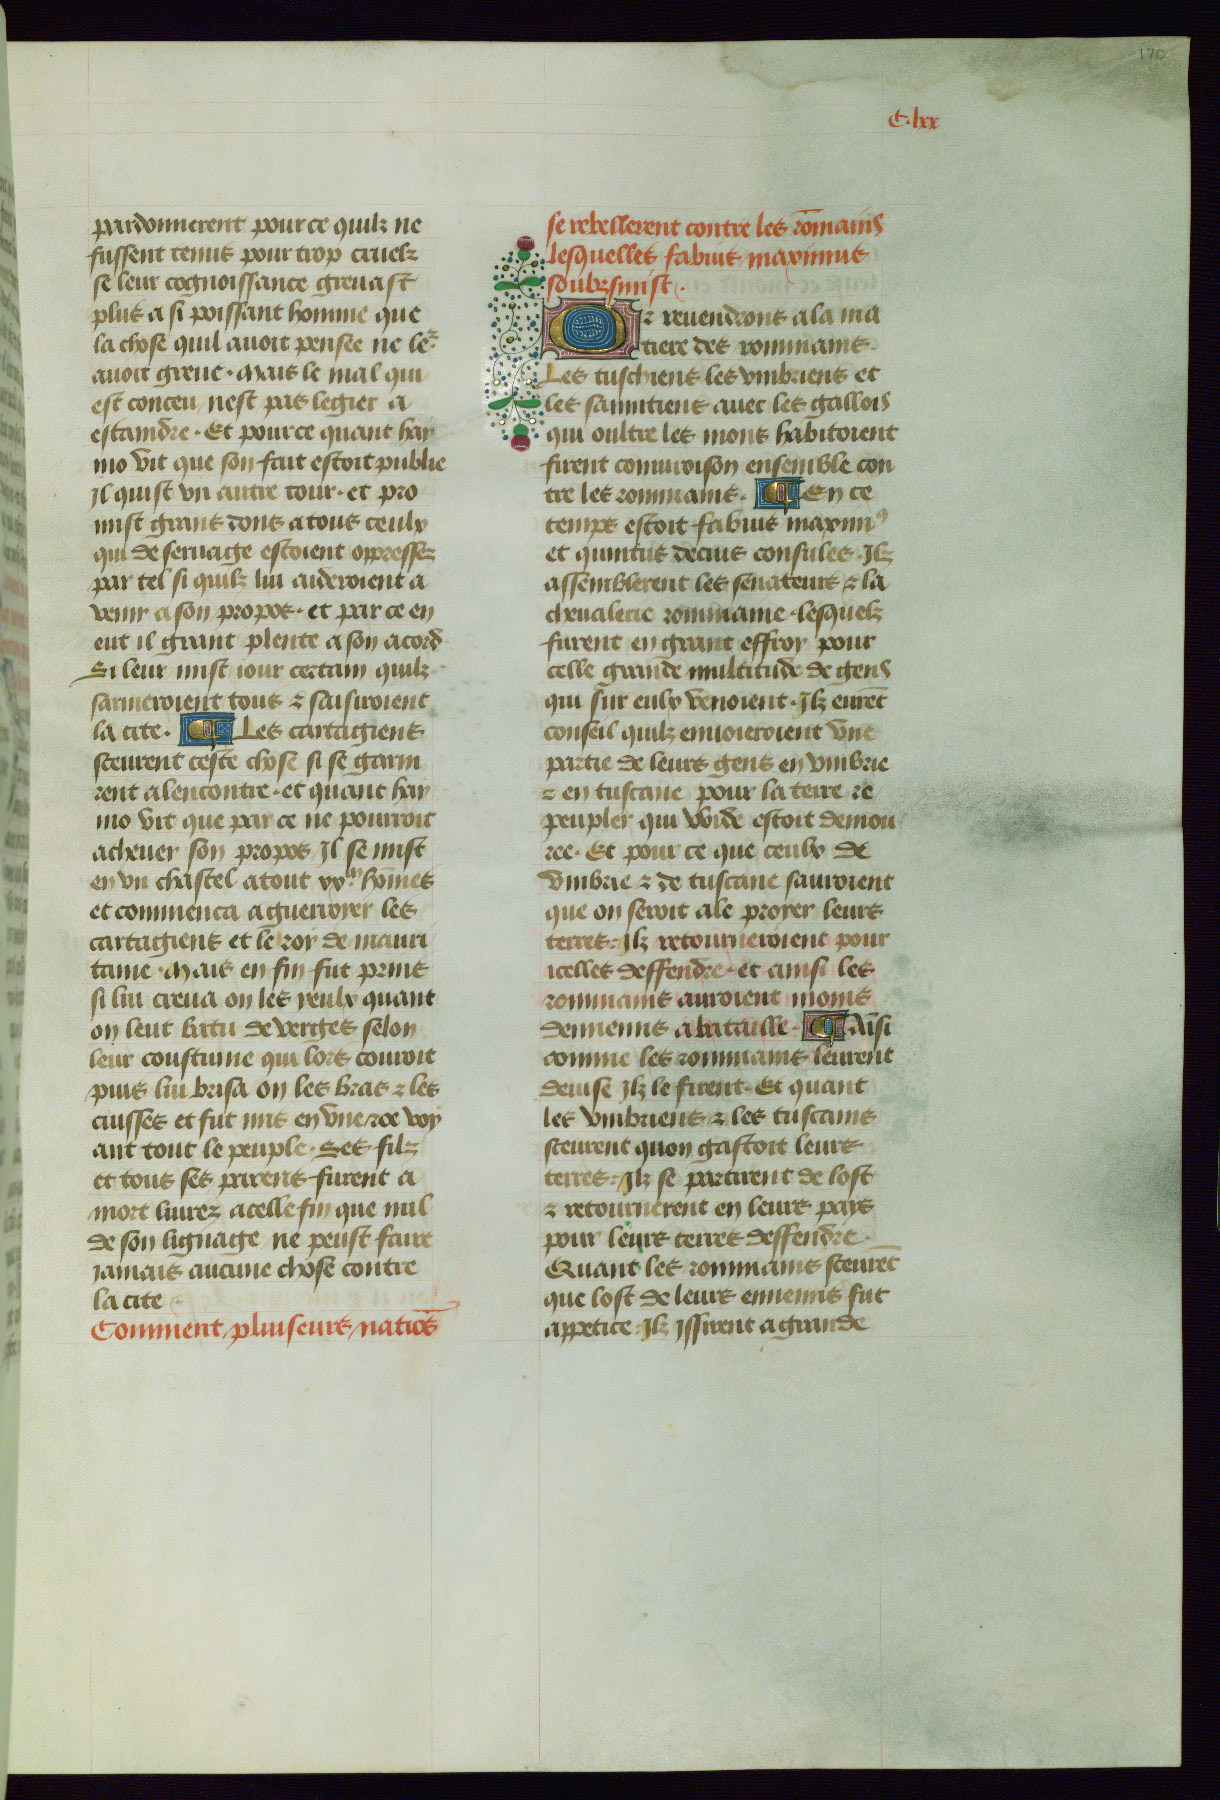 170
C.lxx
pardonnerent pour ce quilz ne
fussent tenus pour trop cruelz
se leur cognoissance greuast
plus a si poissant homme que
la chose quil auoit pensee ne ler
auoit greue. Mais le mal qui
est conceu nest pas legier a
estaindre. Et pource quant hay
mo vit que son fait estoit publie
Il quist vn autre tour. et pro
mist grans dons a tous ceulx
qui de seruage estoient oppressez
par tel si quilz lui aideroient a
venir a son propos. et par ce en
eut il grant plente a son acord
Si leur mist iour certain quilz
sarmeroient tous & saisiroient
la cite. ¶ Les cartagiens
sceurent ceste chose si se garni
rent alencontre. et quant hay
mo vit que par ce ne pourroit
acheuer son propos Il se mist
en vn chastel atout xxm hōmes
et commenca a guerroyer les
cartagiens et le roy de mauri
tanie. Mais en fin fut prins
si lui creua on les yeulx quant
on leut batu de verges selon
leur coustume qui lors couroit
puis lui brisa on les bras & les
cuisses et fut mis en vne roe voy
ant tout le peuple. Ses filz
et tous ses parens furent a
mort liurez a celle fin que nul
de son lignage ne peust faire
jamais aucune chose contre
la cite.
Comment pluiseurs natiōs
se rebellerent contre les rōmains
lesquelles fabius maximus
soubzmist.
O & reuendrons a la ma
tiere des rommains.
Les tuschiens les vmbriens et
les sannitiens auec les gallois
qui oultre les mons habitoient
firent coniuroison ensemble con
tre les rommains. ¶ En ce
temps estoit fabius maximꝰ
et quintus decius consules. Ilz
assemblerent les senateurs & la
cheualerie rommaine. lesquelz
furent en grant effroy pour
celle grande multitude de gens
qui sur eulx venoient. Ilz eurēt
conseil quilz enuoieroient vne
partie de leurs gens en vmbrie
& en tuscane pour la terre re
peupler qui voide estoit demou
ree. Et pour ce que ceulx de
vmbrie & de tuscane sauroient
que on seroit ale proyer leurs
terres. Ilz retourneroient pour
icelles deffendre. et ainsi les
rommains auroient moins
dennemis a bataille. ¶ Ainsi
comme les rommains leurent
deuise Ilz le firent. Et quant
les vmbriens & les tuscains
sceurent quon gastoit leurs
terres. Ilz se partirent de lost
& retournerent en leurs pays
pour leurs terres deffendre.
Quant les rommains sceurēt
que lost de leurs ennemis fut
appetice. Ilz issirent a grande